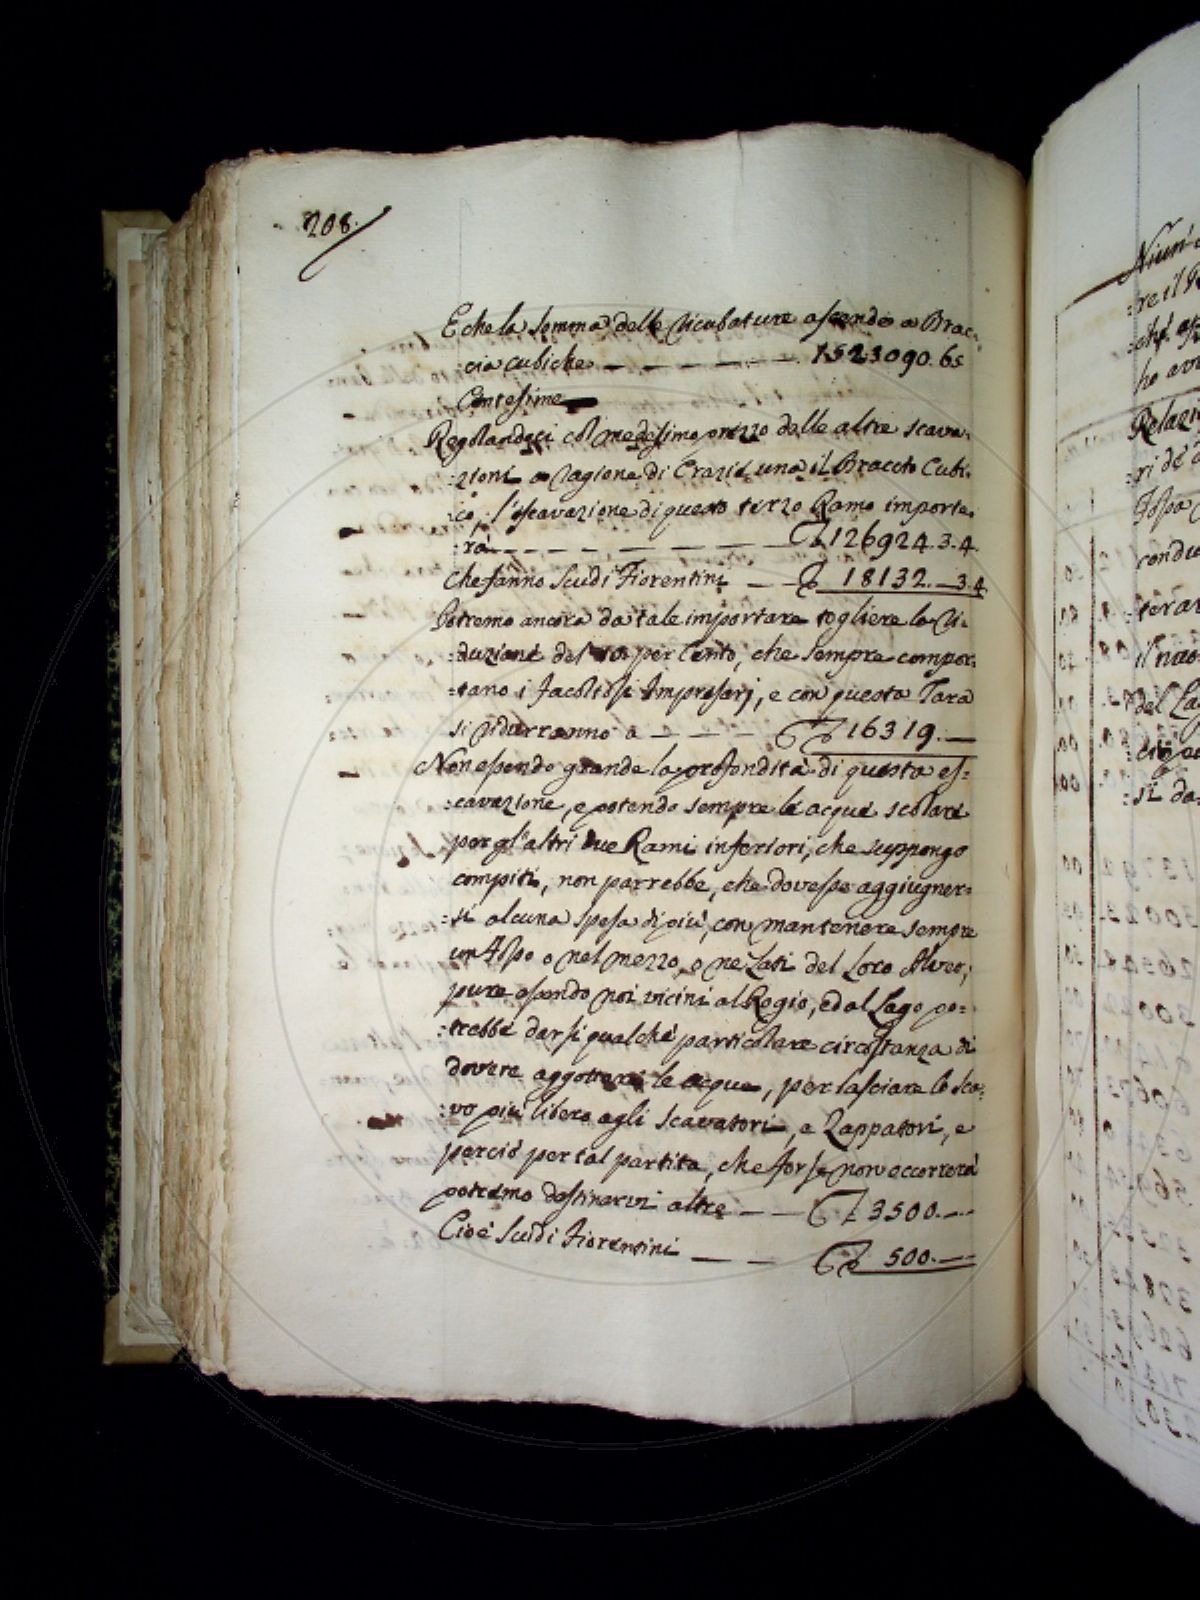 208.
E che la somma delle ricubature ascende a Brac-
:cia cubiche — — — — — 1523090.65
Centesime
Regolandoci col medesimo prezzo delle altre scava:
:zioni a ragione di Crazie una il Braccio Cubi:
:co, l'escavazione di questo terzo Ramo importe:
:rà — — — — — — £ 126924.3.4.
Che fanno Scudi Fiorentini — 18132.—3.4.
Potremo ancora da tale importare togliere la ri:
:duzione del 10. per Cento, che sempre compor:
:tano i facoltosi Impresarj, e con questa Tara
si ridurranno a — — — 16319.—
Non essendo grande la profondità di questa es:
:cavazione, e potendo sempre le acque scolare
per gl'altri due Rami inferiori, che suppongo
compiti, non parrebbe, che dovesse aggiugner:
:si alcuna spesa di più, con mantenere sempre
un Aspo o nel mezzo, o ne Lati del Loro Alveo;
pure essendo noi vicini al Rogio, ed al Lago po:
:trebbe darsi qualche particolare circostanza di
dovere aggottare le acque, per lasciare lo sca:
:vo più libero agli scavatori, e Zappatori, e
perciò per tal partita, che forse non occorrerà
potremo destinarvi altre — — £ 3500.—
Cioè Scudi Fiorentini — — 500.—
Relazi
condu
terar
del La
:si da